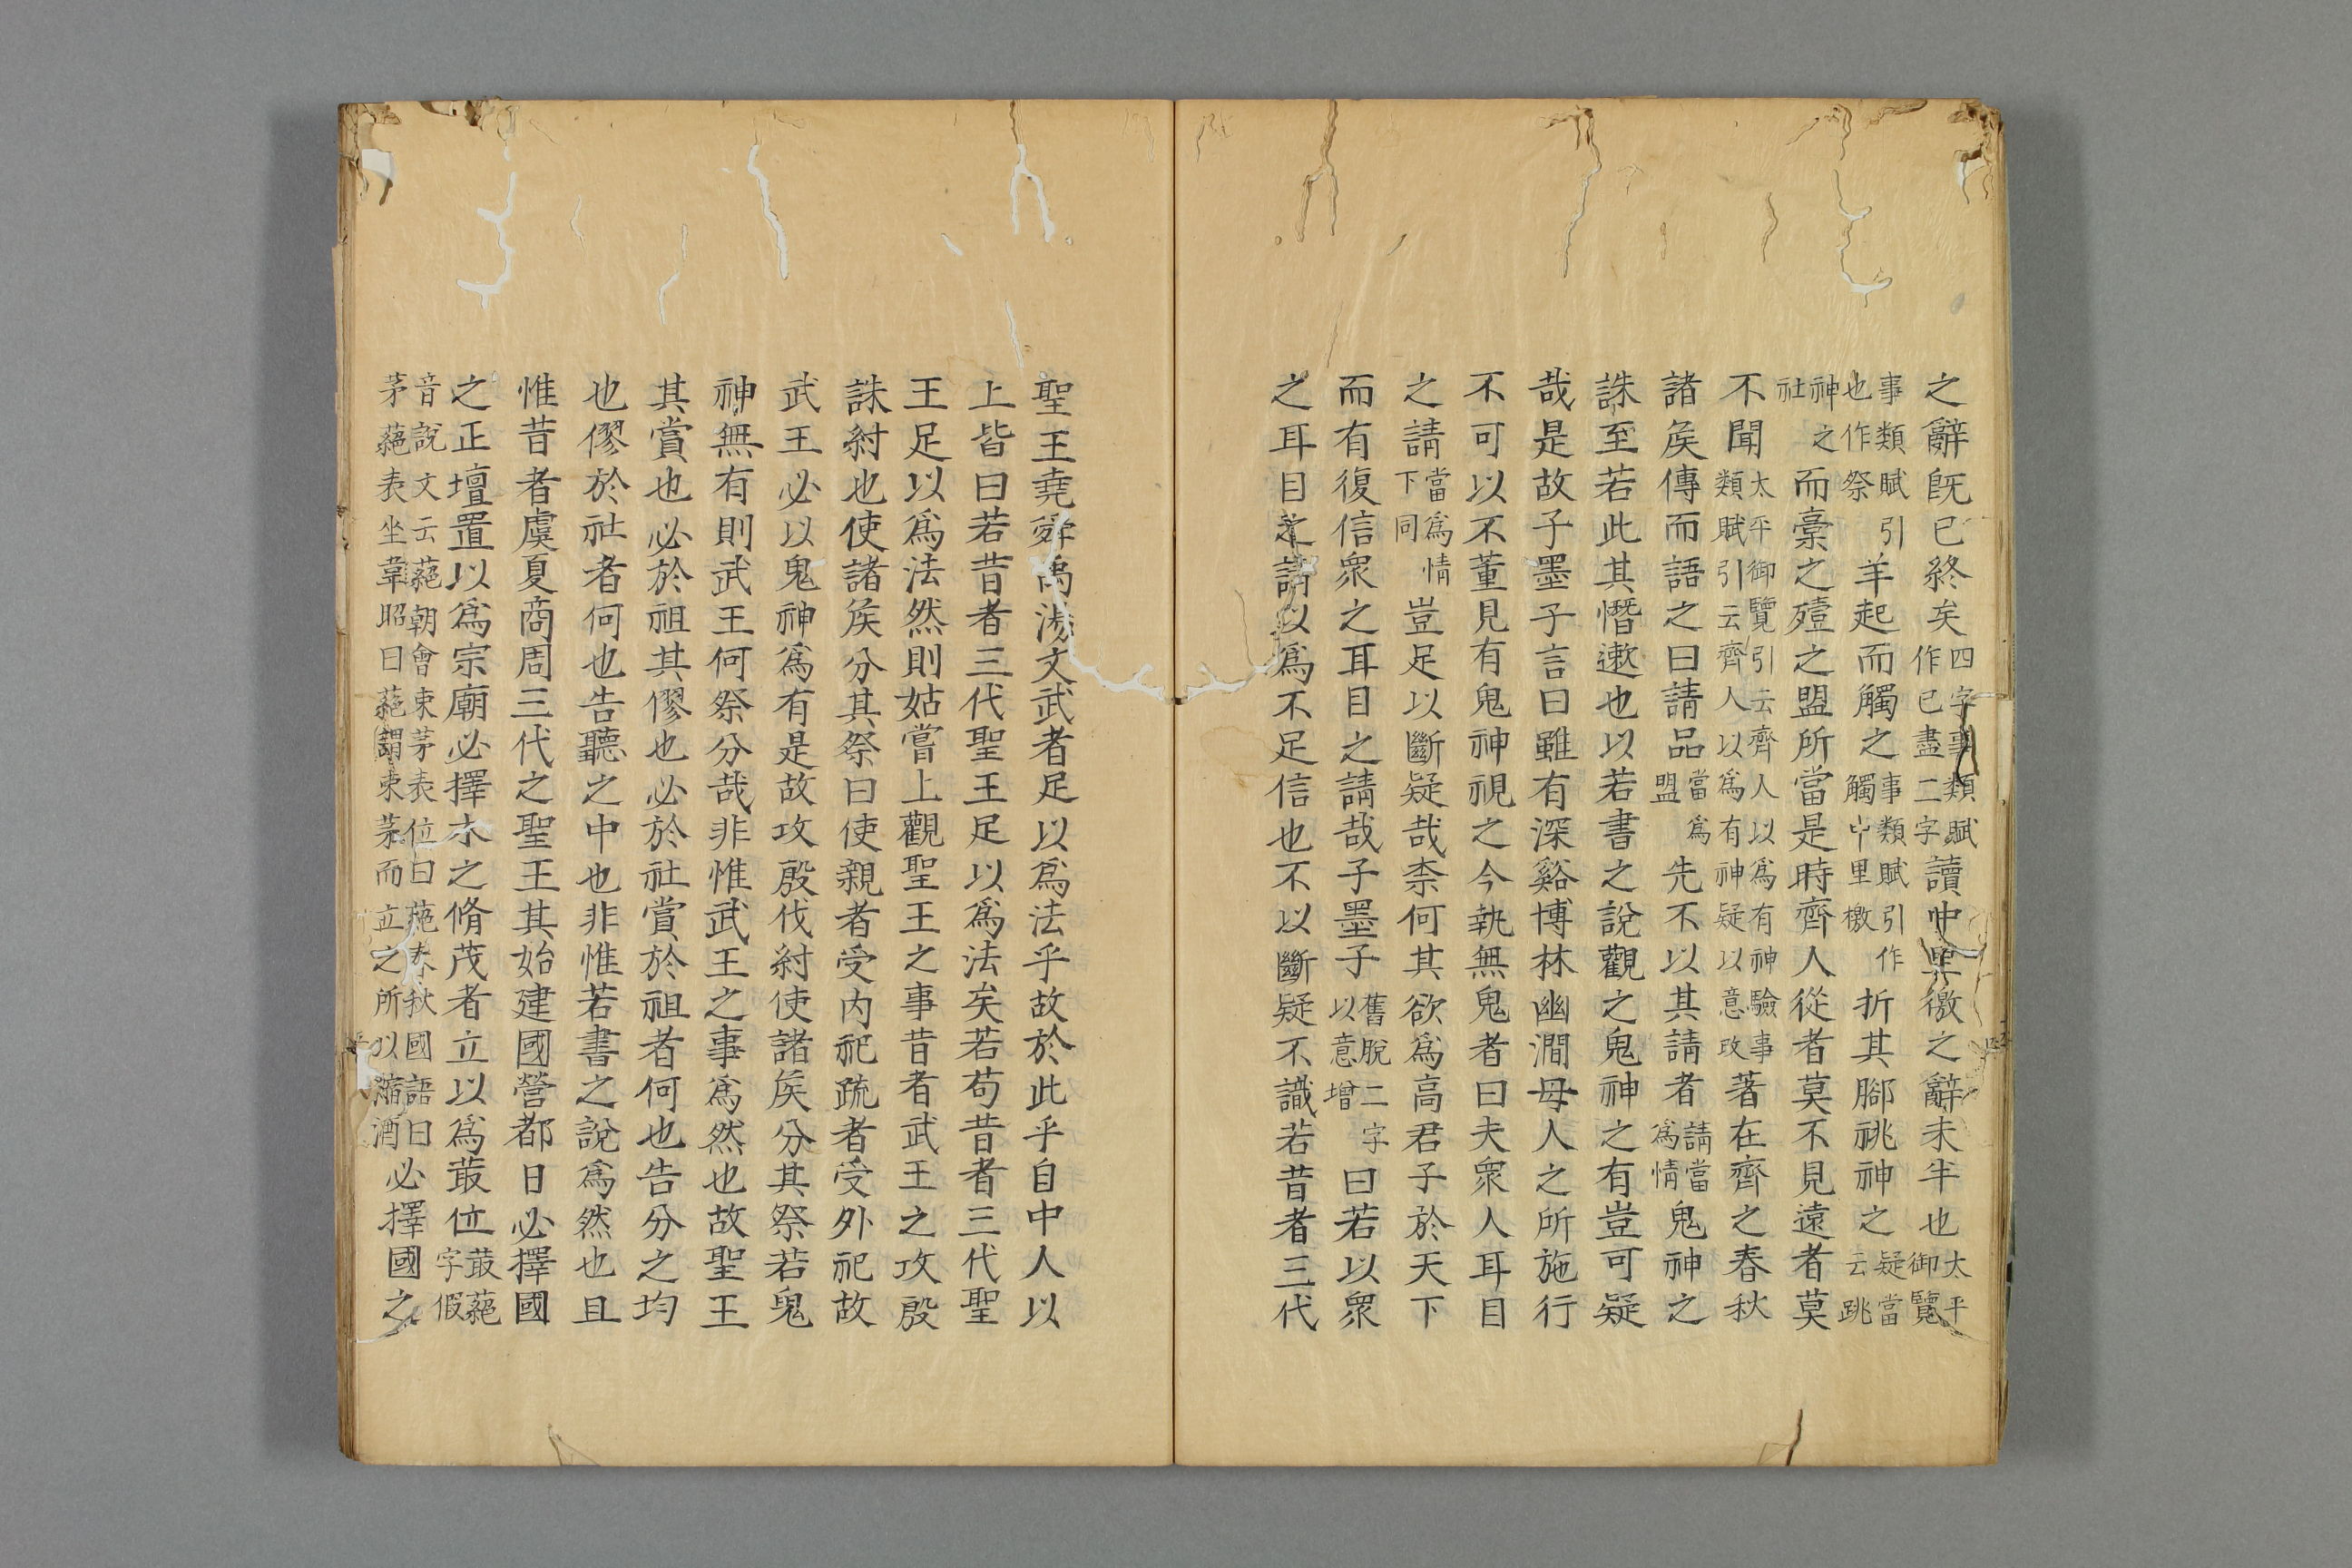 之辭旣已終矣四字事類賦作已盡二字讀中里徼之辭未半也太平御覽
事類賦引也作祭羊起而觸之事類賦引作觸中里檄折其腳祧神之疑當云跳
神之社而稾之殪之盟所當是時齊人從者莫不見遠者莫
不聞太平御覽引云齊人以爲有神驗事類賦引云齊人以爲有神疑以意改著在齊之春秋
諸矦傳而語之曰請品當爲盟先不以其請者請當爲情鬼神之
誅至若此其憯遬也以若書之說觀之鬼神之有豈可疑
哉是故子墨子言曰雖有深谿博林幽澗毋人之所施行
不可以不董見有鬼神視之今執無鬼者曰夫衆人耳目
之請當爲情下同豈足以斷疑哉柰何其欲爲高君子於天下
而有復信衆之耳目之請哉子墨子舊脫二字以意增曰若以衆
之耳目之請以爲不足信也不以斷疑不識若昔者三代
聖王堯舜禹湯文武者足以爲法乎故於此乎自中人以
上皆曰若昔者三代聖王足以爲法矣若苟昔者三代聖
王足以爲法然則姑嘗上觀聖王之事昔者武王之攻殷
誅紂也使諸矦分其祭曰使親者受内祀疏者受外祀故
武王必以鬼神爲有是故攻殷伐紂使諸矦分其祭若鬼
神無有則武王何祭分哉非惟武王之事爲然也故聖王
其賞也必於祖其僇也必於社賞於祖者何也告分之均
也僇於社者何也告聽之中也非惟若書之說爲然也且
惟昔者虞夏商周三代之聖王其始建國營都日必擇國
之正壇置以爲宗廟必擇木之脩茂者立以爲菆位菆蕝字假
音說文云蕝朝會束茅表位曰蕝春秋國語曰茅蕝表坐韋昭曰蕝謂束茅而立之所以縮酒必擇國之